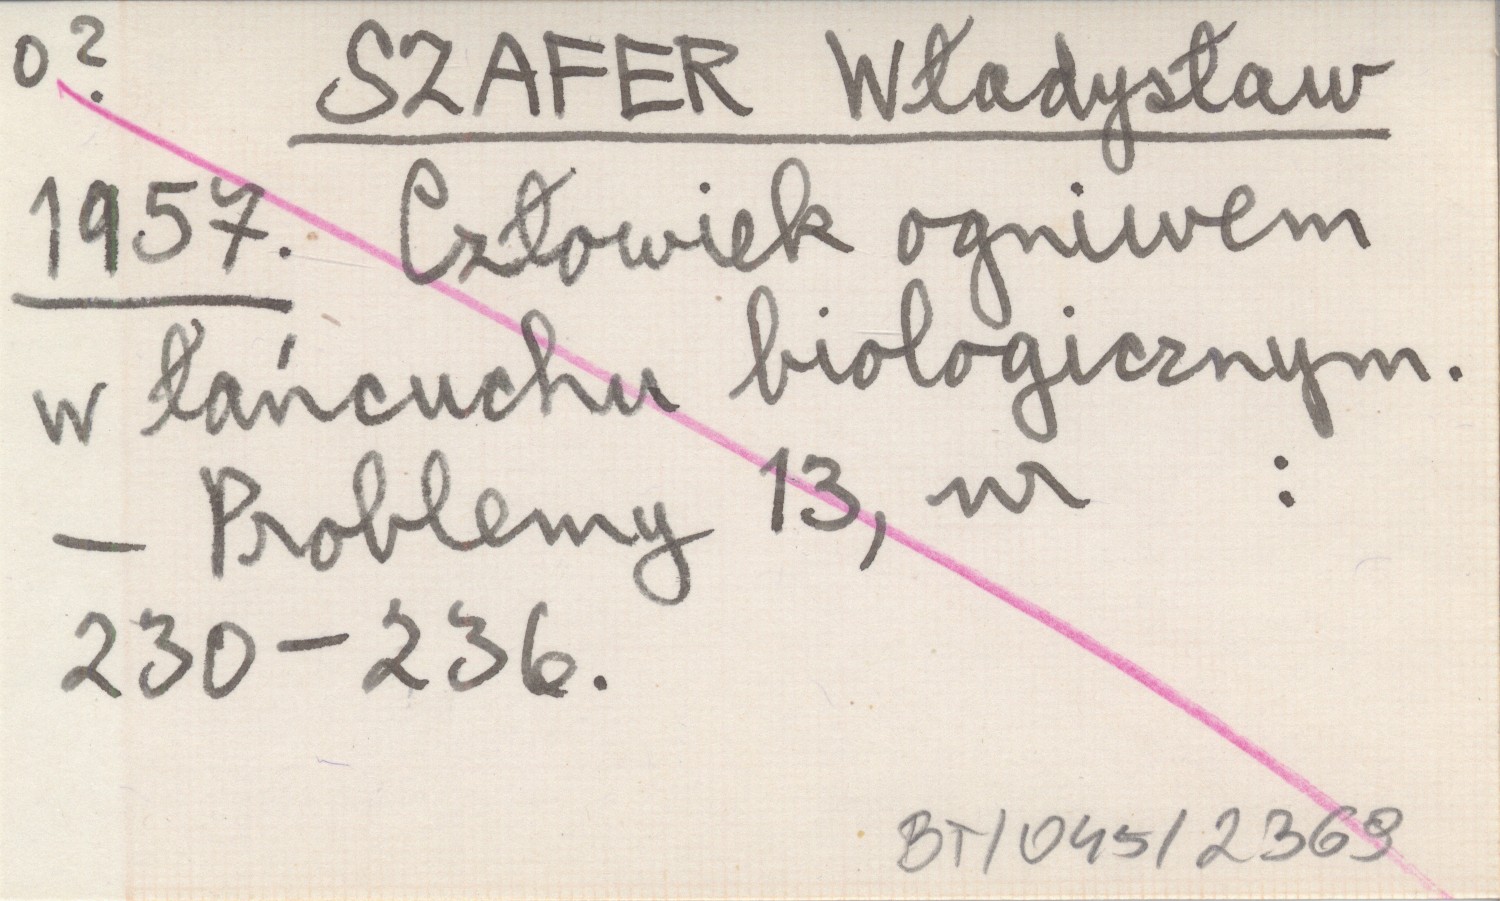 o ?
SZAFER Władysław
1957. Człowiek ogniwem
w łańcuchu biologicznym.
— Problemy 13, nr :
230-236.
BT/045/2369